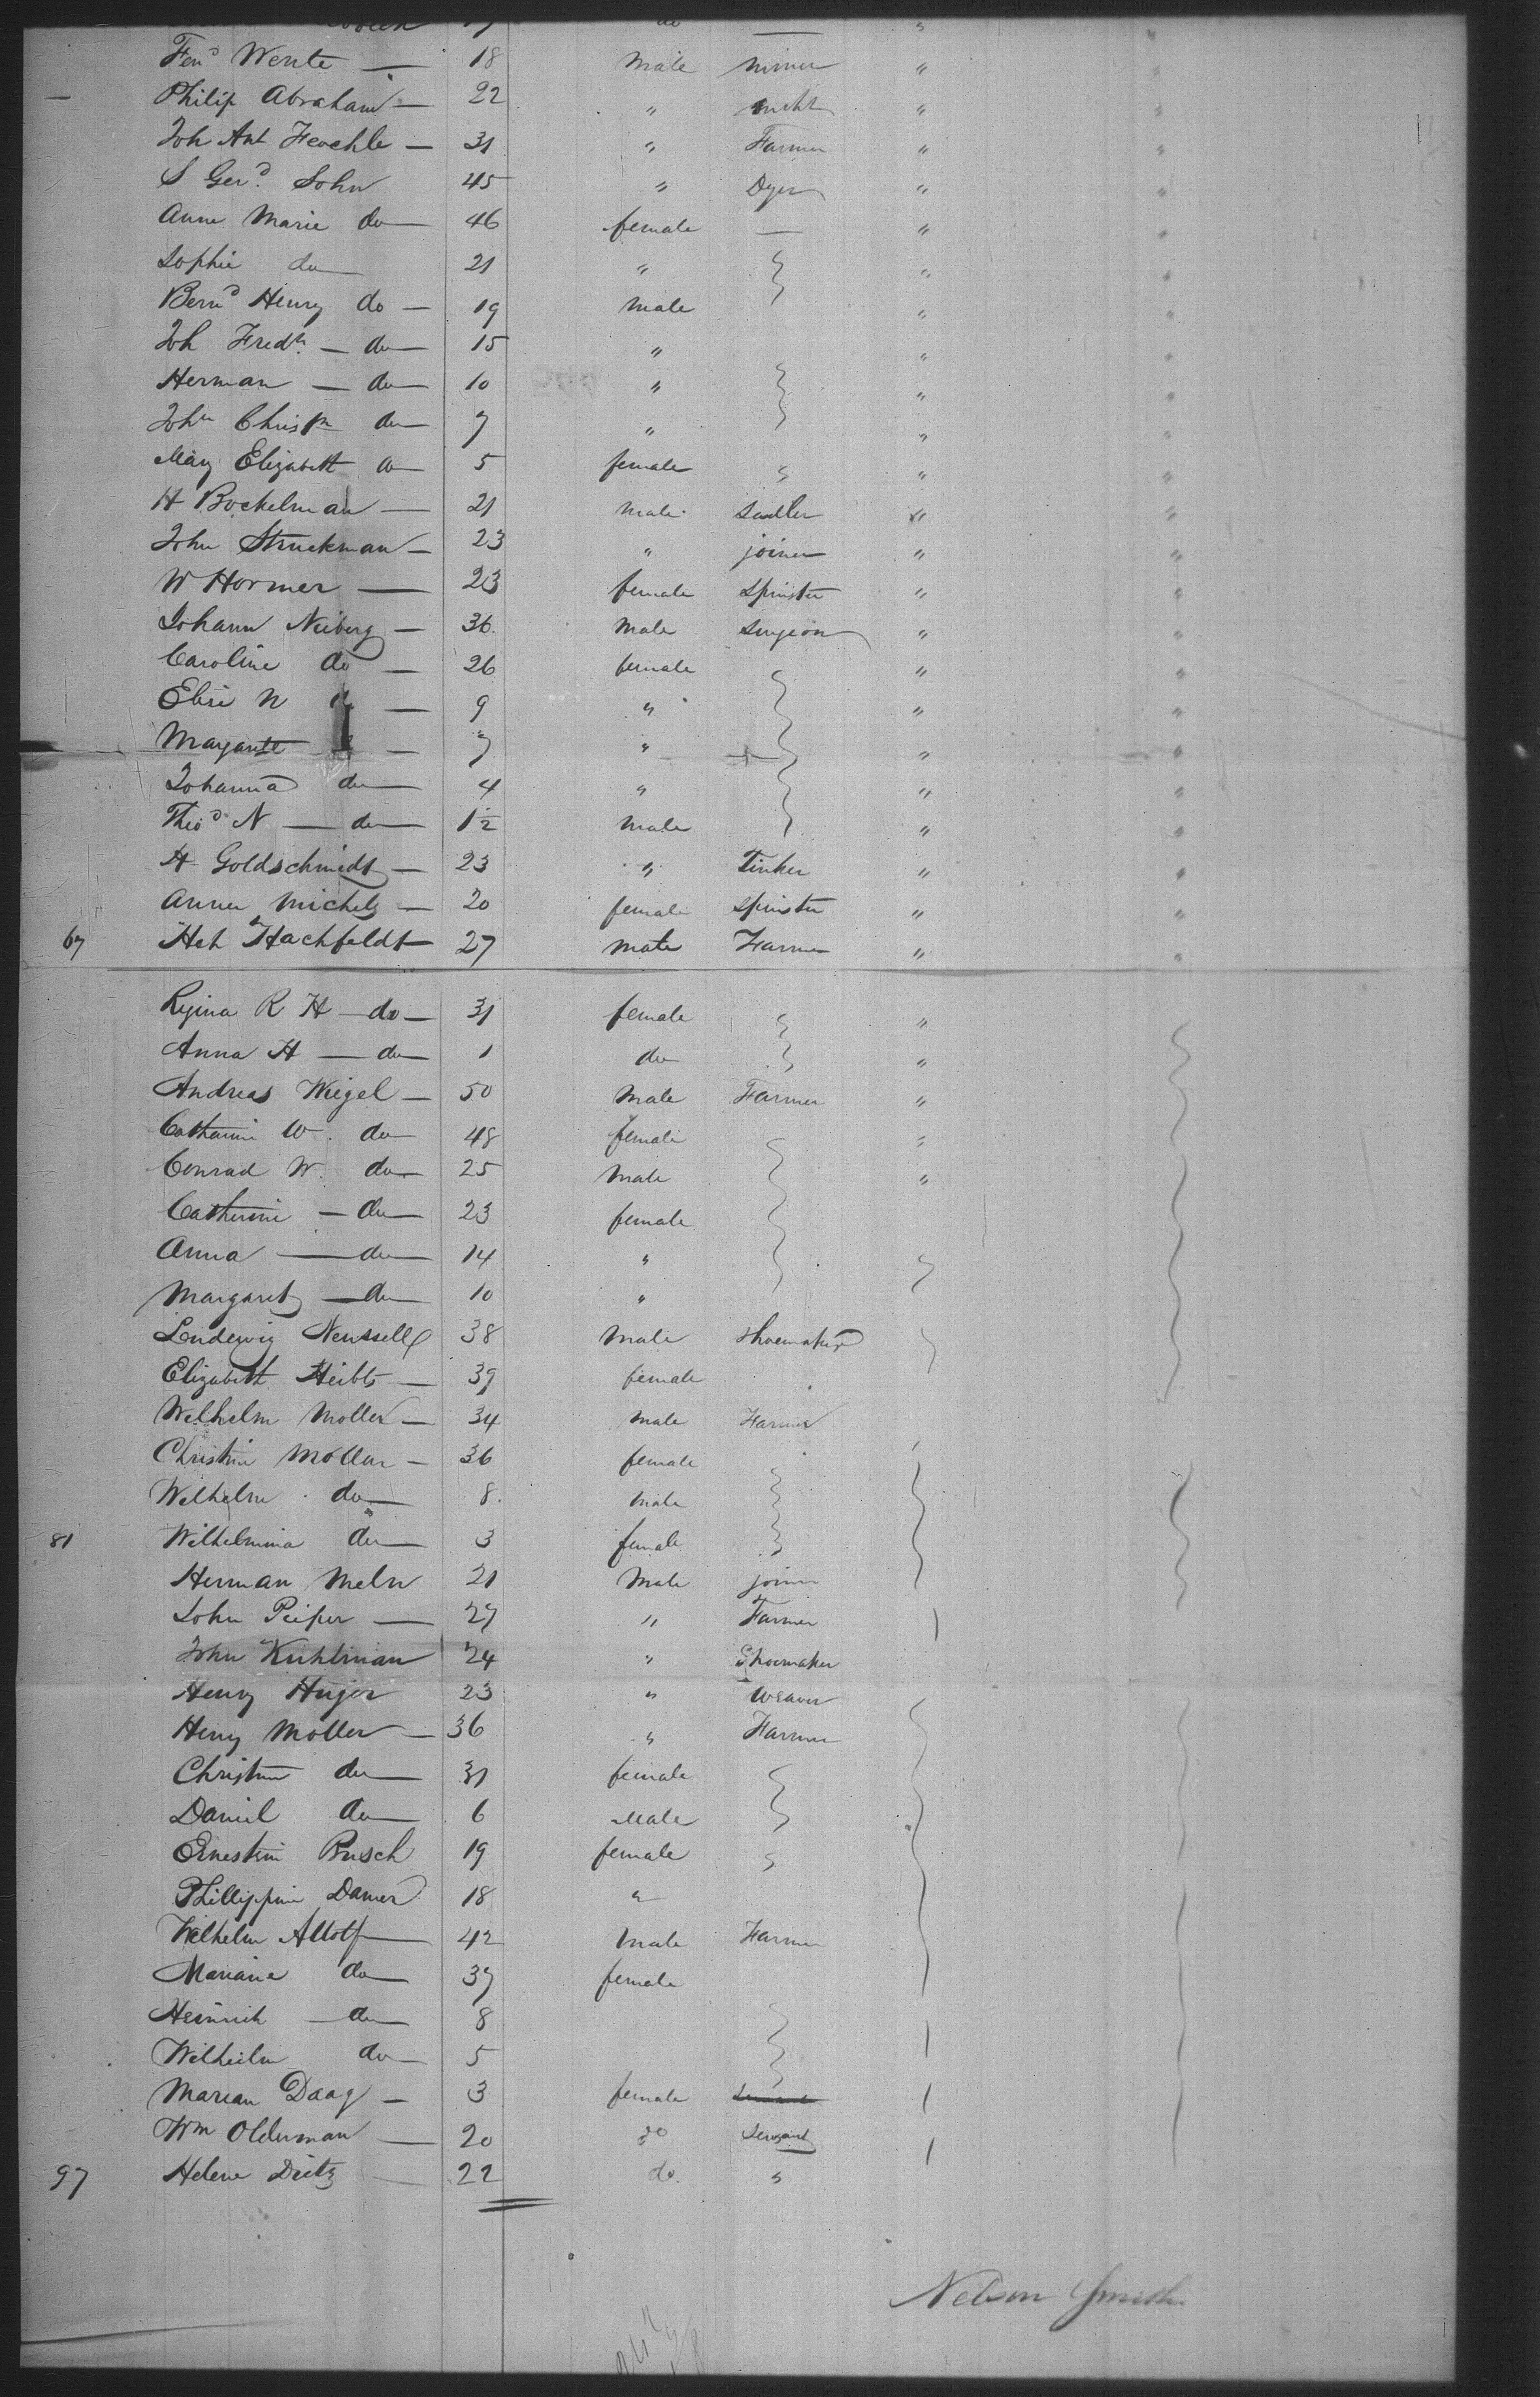 Fend Wente — 18 Male miner "
Philip Abraham — 22 " "
Joh Ant — 31 " Farmer "
S Gerd. Sohn 45 " Dyer "
Anne Marie do 46 female — "
Sophie do 21 " "
Bernd Henry do — 19 Male "
Joh Fredk. — do 15 " "
Herman — do 10 " "
John Christn do 7 " "
Mary Elizabeth do 5 female " "
H Bockelman — 21 Male Sadler "
John Struckman — 23 " joiner "
W Hormer — 23 female Spinster "
Johann Neiberg — 36 Male Surgeon "
Caroline do — 26 female "
Elise N — 9 " "
— 7 " "
Johanna do 4 " "
Theod N — do 1½ Male "
H Goldschmidt — 23 " Tinker "
Anna Michels — 20 female Spinster "
67 Hch Hachfeldt 27 Male Farmer "
Regina R H — do — 31 female "
Anna H — do 1 do "
Andreas Wiegel — 50 Male Farmer "
Catharine W. do 48 female "
Conrad W. do 25 Male "
Catherine — do 23 female
Anna — do 14 "
Margaret — do 10 "
Ludewig 38 Male Shoemaker
Elizabeth — 39 female
Wilhelm Moller — 34 Male Farmer
Christine Mollar — 36 female
Wilhelm do 8. Male
81 Wilhelmina do 3 female
Herman Meln 21 Male joiner
John Peiper — 27 " Farmer
John Kuhlman 24 " Shoemaker
Henry Hujer 23 " Weaver
Henry Moller — 36 " Farmer
Christine do 31 female
Daniel do 6 Male
Ernestine Busch 19 female
Phillippine Damer 18 "
Wilhelm Altolf 42 Male Farmer
Mariane do 37 female
Heinrich — do 8
Wilheilm do 5
Marian Daag — 3 female
Wm Olderman — 20 do Servant
97 Helene Dietz — 22 do. "
Nelson Smith